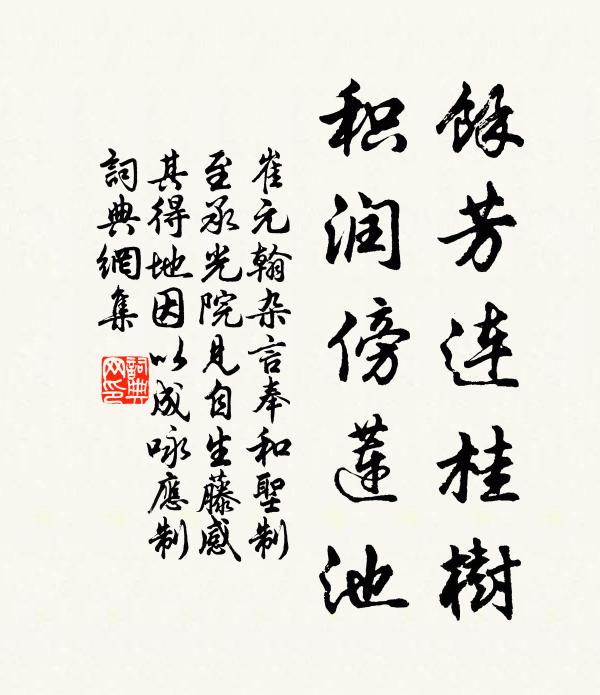 餘芳连桂樹
积润傍莲池
崔元翰杂言奉和聖制
至承光院見自生藤感
其得地因以成咏應制
詞典網集
詞典網印